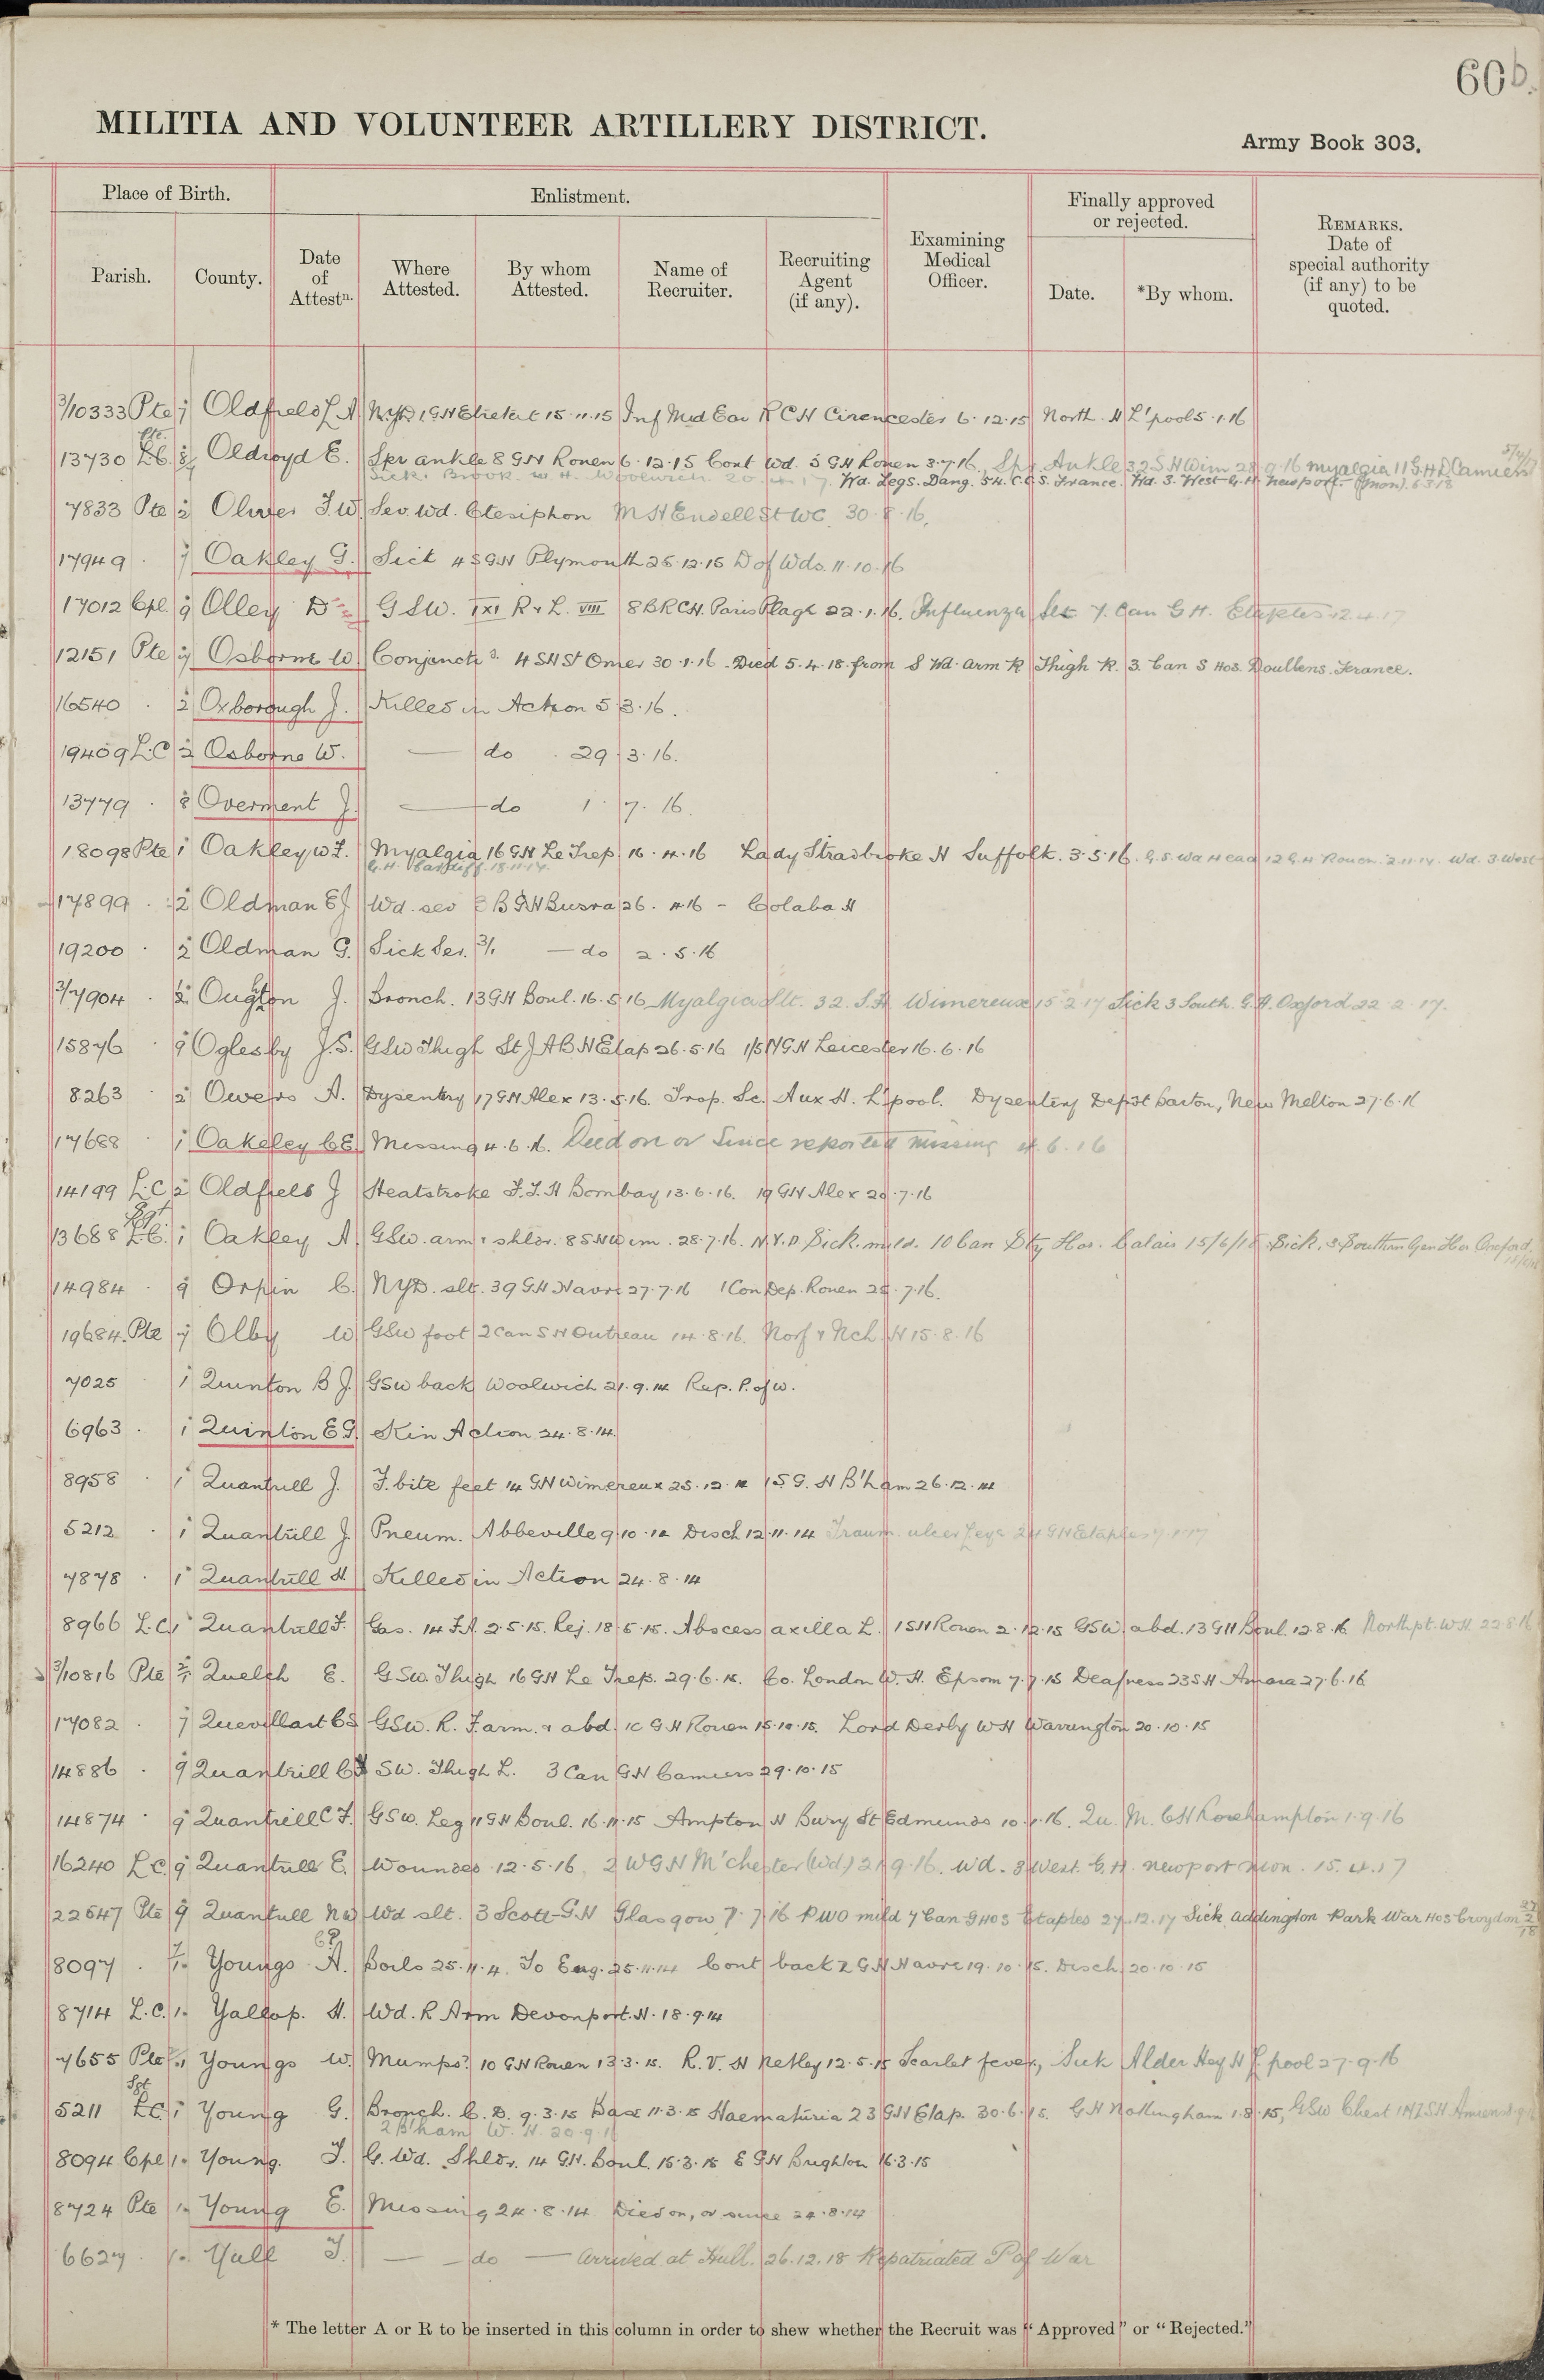 60b.
MILITIA AND VOLUNTEER ARTILLERY DISTRICT.
Army Book 303.
Place of Birth.
Enlistment.
Finally approved
or rejected.
Parish.
County.
Date
of
Attestn.
Where
Attested.
By whom
Attested.
Name of
Recruiter.
Recruiting
Agent
(if any).
Examining
Medical
Officer.
Date.
*By whom.
REMARKS.
Date of
special authority
(if any) to be
quoted.
3/10333 Pte 7 Oldfield L A N.Y.D. 1 GH Etretat 15.11.15 Inf Mid Ear R C H Cirencester 6.12.15 North. H L'pool 5.1.16
Pte.
13730 L.C. 8 Oldroyd E. Spr ankle 8 GH Rouen 6.12.15 Cont Wd. 5 GH Rouen 3.7.16. Spr. Ankle 32 S H Wim 28.9.16 Myalgia 11 G.H. Camiers
Sick. Brook. W H. Woolwich 20. 17. Wd. Legs. Dang. 54. C.C.S. France. Wd. 3. West G.H. Newport (Mon).
7833 Pte 2 Oliver J.W. Sev. Wd. Ctesiphon M H Endell St WC. 30.8.16.
17949 . 7 Oakley G. Sick 4 S GH Plymouth 26.12.15 D of Wds. 11.10.16
17012 Cpl 9 Olley D GSW. R & L. VIII 8 BRCH. Paris Plage 22.1.16. Influenza 7. Can G H. Etaples 12.4.17
12151 Pte 7 Osborne W Conjunct. 4 SH St Omer 30.1.16. Died 5.4.18. from S Wd. Arm R Thigh R. 3. Can S Hos. Doullens. France.
16540 . 2 Oxborough J. Killed in Action 5.3.16.
19409 L.C 2 Osborne W. — do . 29.3.16.
13779 . 8 Overment J. — do 1.7.16.
18098 Pte 1 Oakley W F. Myalgia 16 GH Le Trep. 16.4.16 Lady Stradbroke H Suffolk. 3.5.16. G.S. Wd Head 12 G.H Rouen. 2.11.17. Wd. 3. West
G.H. Cardiff. 18.11.17.
17899 . 2 Oldman E J Wd. sev 3 B GH Busra 26.4.16 - Colaba H
19200 . 2 Oldman G. Sick Ser. 3/1 — do 2.5.16
3/7904 . 2 Oughton J. Bronch. 13 GH Boul. 16.5.16 Myalgia Slt. 32. S.H. Wimereux 15.2.17 Sick 3 South. G.H. Oxford 22.2.17.
15876 . 9 Oglesby J.S. GSW Thigh St J A B H Etap 26.5.16 1/5 N GH Leicester 16.6.16
8263 . 2 Owers A. Dysentery 17 GH Alex 13.5.16. Trop. Sc. Aux H. L'pool. Dysentery Depot Barton, New Melton 27.6.16
17688 . 1 Oakeley C E. Missing 4.6.16. Died on or Since reported missing 4.6.16
14199 L.C 2 Oldfield J Heatstroke F.F.H Bombay 13.6.16. 19 GH Alex 29.7.16
Sgt
13688 L.C. 1 Oakley A. GSW. arm & shldr. 8 SH Wim. 28.7.16. N.Y.D Sick. mild. 10 Can Sty Hos. Calais 15/6/18 Sick. 3. Southern Gen Hos Oxford.
14984 . 9 Orpin C. NYD. slt. 39 GH Havre 27.7.16 1 Con Dep. Rouen 28.7.16.
19684 Pte 7 Olby W GSW foot 2 Can S H Outreau 14.8.16. Norf & Nch. H 15.8.16
7025 1 Quinton B J. GSW back Woolwich 21.9.14 Rep. P. of W.
6963 . 1 Quinton E G. K in Action 24.8.14.
8958 . 1 Quantrill J. F. bite feet 14 GH Wimereux 25.12.14 1 S G. H B'ham 26.12.14
5212 . 1 Quantrill J. Pneum. Abbeville 9.10.14 Disch 12.11.14 Traum. ulcer Legs 24 GH Etaples
7878 . 1 Quantrill H. Killed in Action 24.8.14
8966 L.C. 1 Quantrill F. Gas. 14 F.A. 2.5.15. Rej. 18.5.15. Abscess axilla L. 1 SH Rouen 2.12.15 GSW. abd. 13 GH Boul. 12.8.16 Northpt. W.H 22.8.16
3/10816 Pte Quelch E. GSW. Thigh 16 GH Le Trep. 29.6.15. Co. London W. H. Epsom 7.7.15 Deafness 23 S H Amara 27.6.16
17082 . 7 Quevillart C S GSW. R. F.arm. & abd. 10 G H Rouen 15.10.15. Lord Derby W H Warrington 20.10.15
14886 . 9 Quantrill C F SW. Thigh L. 3 Can GH Camiers 29.10.15
14874 . 9 Quantrill C F. GSW. Leg 11 GH Boul. 16.11.15 Ampton H Bury St Edmunds 10.1.16. Qu. M. C H Roehampton 1.9.16
16240 L.C. 9 Quantrill E. Wounded 12.5.16. 2 W G H M'chester (Wd) 21.9.16. Wd. 3 West. G.H. Newport Mon. 15.4.17
22547 Pte 9 Quantrill N W Wd slt. 3 Scott G.H Glasgow 7.7.16 P U O mild 7 Can G Hos Etaples 27.12.17 Sick Addington Park War Hos Croydon
8097 . 1 Youngs A. Boils 25.11.14. To Eng. 25.11.14 Cont back 2 G.H Havre 19.10.15. Disch 20.10.15
8714 L.C. 1. Yallop. H. Wd. R Arm Devonport. H. 18.9.14
7655 Pte 1 Youngs W. Mumps? 10 GH Rouen 13.3.15. R.V. H Netley 12.5.15 Scarlet fever, Sick Alder Hey H L'pool 27.9.16
Sgt
5211 L.C. 1 Young G. Bronch. C.D. 9.3.15 Base 11.3.15 Haematuria 23 GH Etap. 30.6.15. G H Nottingham 1.8.15, GSW Chest
2 B'ham W. H. 20.9.1
8094 Cpl 1. Young. J. G. Wd. Shldr. 14 G.H. Boul. 15.3.15 E GH Brighton 16.3.15
8724 Pte 1. Young E. Missing 24.8.14. Died on, or since 24.8.14
6627 . 1. Yull J. — do — Arrived at Hull. 26.12.18 Repatriated P of War
* The letter A or R to be inserted in this column in order to shew whether the Recruit was "Approved" or "Rejected."